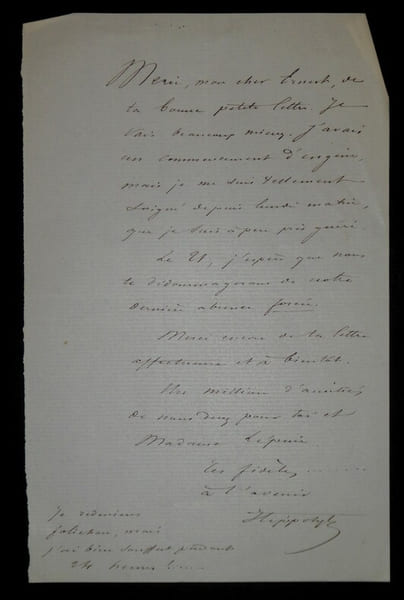 Merci, mon cher Ernest, de
ta bonne petite lettre. Je
vais beaucoup mieux. J'avais
un commencement d'angine,
mais je me suis tellement
soigné depuis lundi matin,
que je suis à peu près guéri.
Le 21, j'espère que nous
te dédommagerons de notre
dernière absence forcée.
Merci encore de ta lettre
affectueuse et à bientôt.
Un million d'amitiés
de nous deux pour toi et
Madame
Tes fidèles
à l'avenir
Hippolyte
Je redeviens
folichon, mais
j'ai bien souffert pendant
24 heures